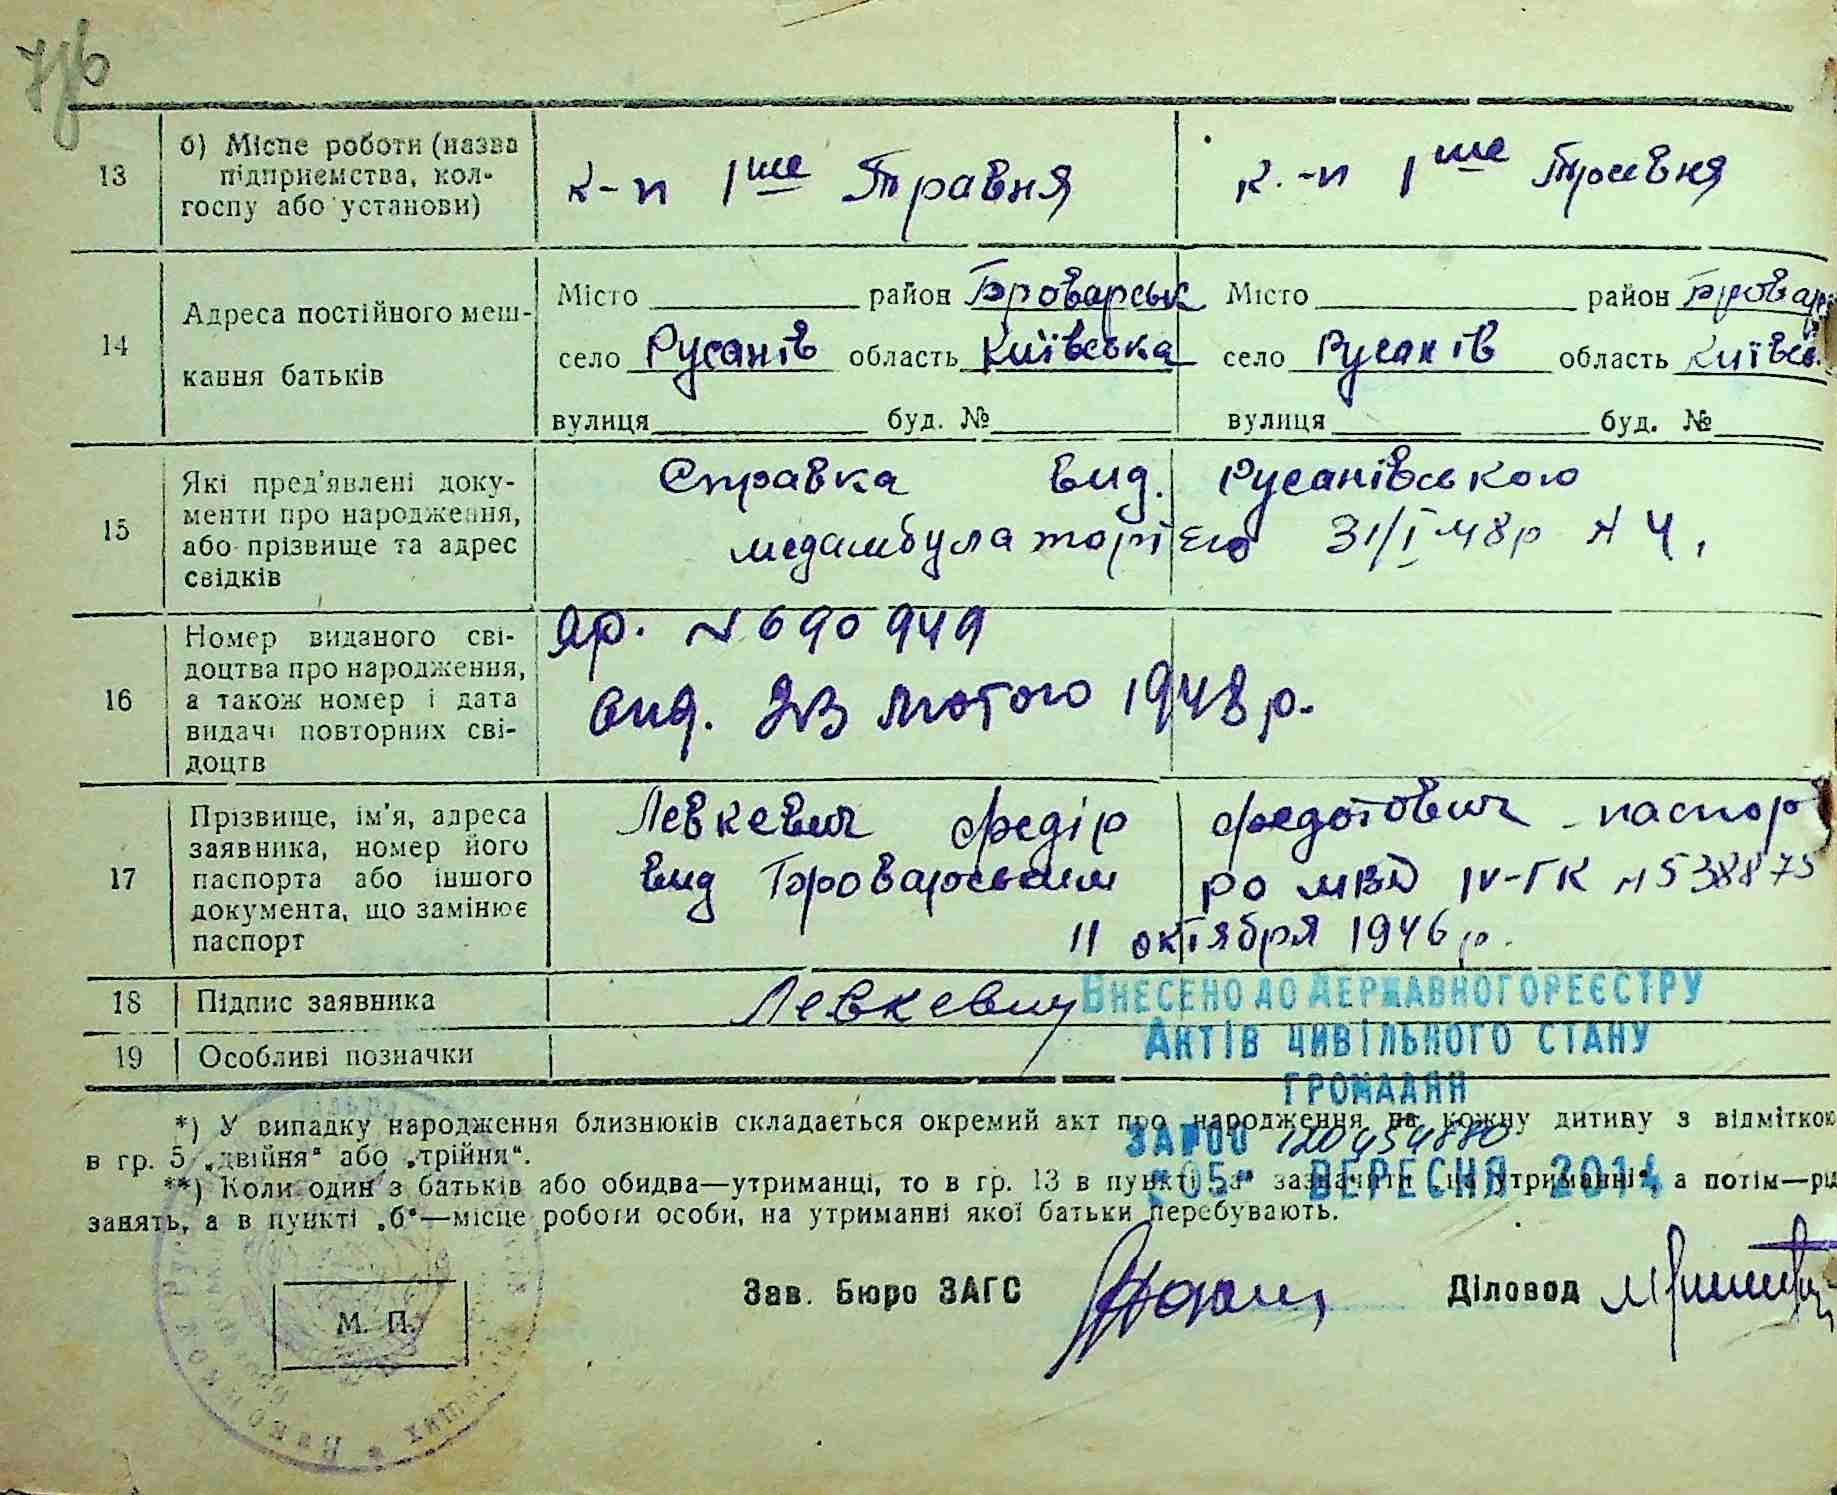 13
б) Місце роботи (назва
підприємства, кол-
госпу або установи)
к-п 1ше Травня
к.-п 1ше Травня
14
Адреса постійного меш-
кання батьків
Місто район Броварськ
село Русанів область Київська
вулиця буд. №
Місто район Бровар
село Русанів область Київсь.
вулиця буд. №
15
Які пред'явлені доку-
менти про народження,
або прізвище та адрес
свідків
Справка вид. Русанівською
медамбулаторією 31/I 48р N 4.
16
Номер виданого сві-
доцтва про народження,
а також номер і дата
видачі повторних сві-
доцтв
яр. N 690949
вид. лютого 1948 р.
17
Прізвище, ім'я, адреса
заявника, номер його
паспорта або іншого
документа, що замінює
паспорт
Левкевич Федір Федотович паспор
вид Броварським РО МВД IV-ГК N 538875
11 октября 1946 р.
18
Підпис заявника
Левкевич
19
Особливі позначки
ВНЕСЕНО ДО ДЕРЖАВНОГО РЕЄСТРУ
АКТІВ ЦИВІЛЬНОГО СТАНУ
ГРОМАДЯН
*) У випадку народження близнюків складається окремий акт про народження на кожну дитину з відміткою
в гр. 5 „двійня“ або „трійня“.
**) Коли один з батьків або обидва—утриманці, то в гр. 13 в пункті „а“ зазначити „на утриманні“, а потім—рід
занять, а в пункті „б“—місце роботи особи, на утриманні якої батьки перебувають.
"05" ВЕРЕСНЯ 2014
Зав. Бюро ЗАГС
Діловод
М. П.